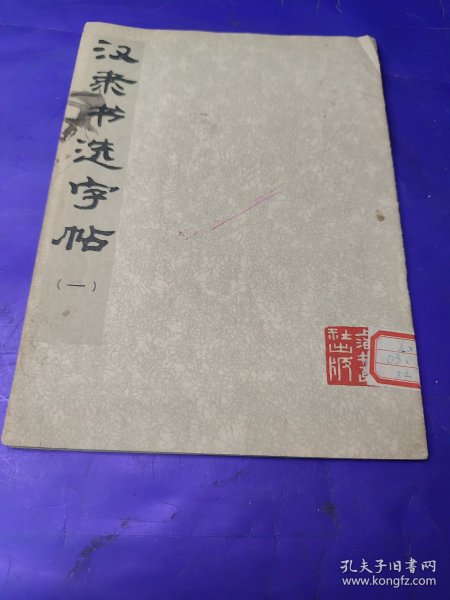 汉隶书选字帖
（一）
社出版
孔夫子旧书网
www.kongfz.com